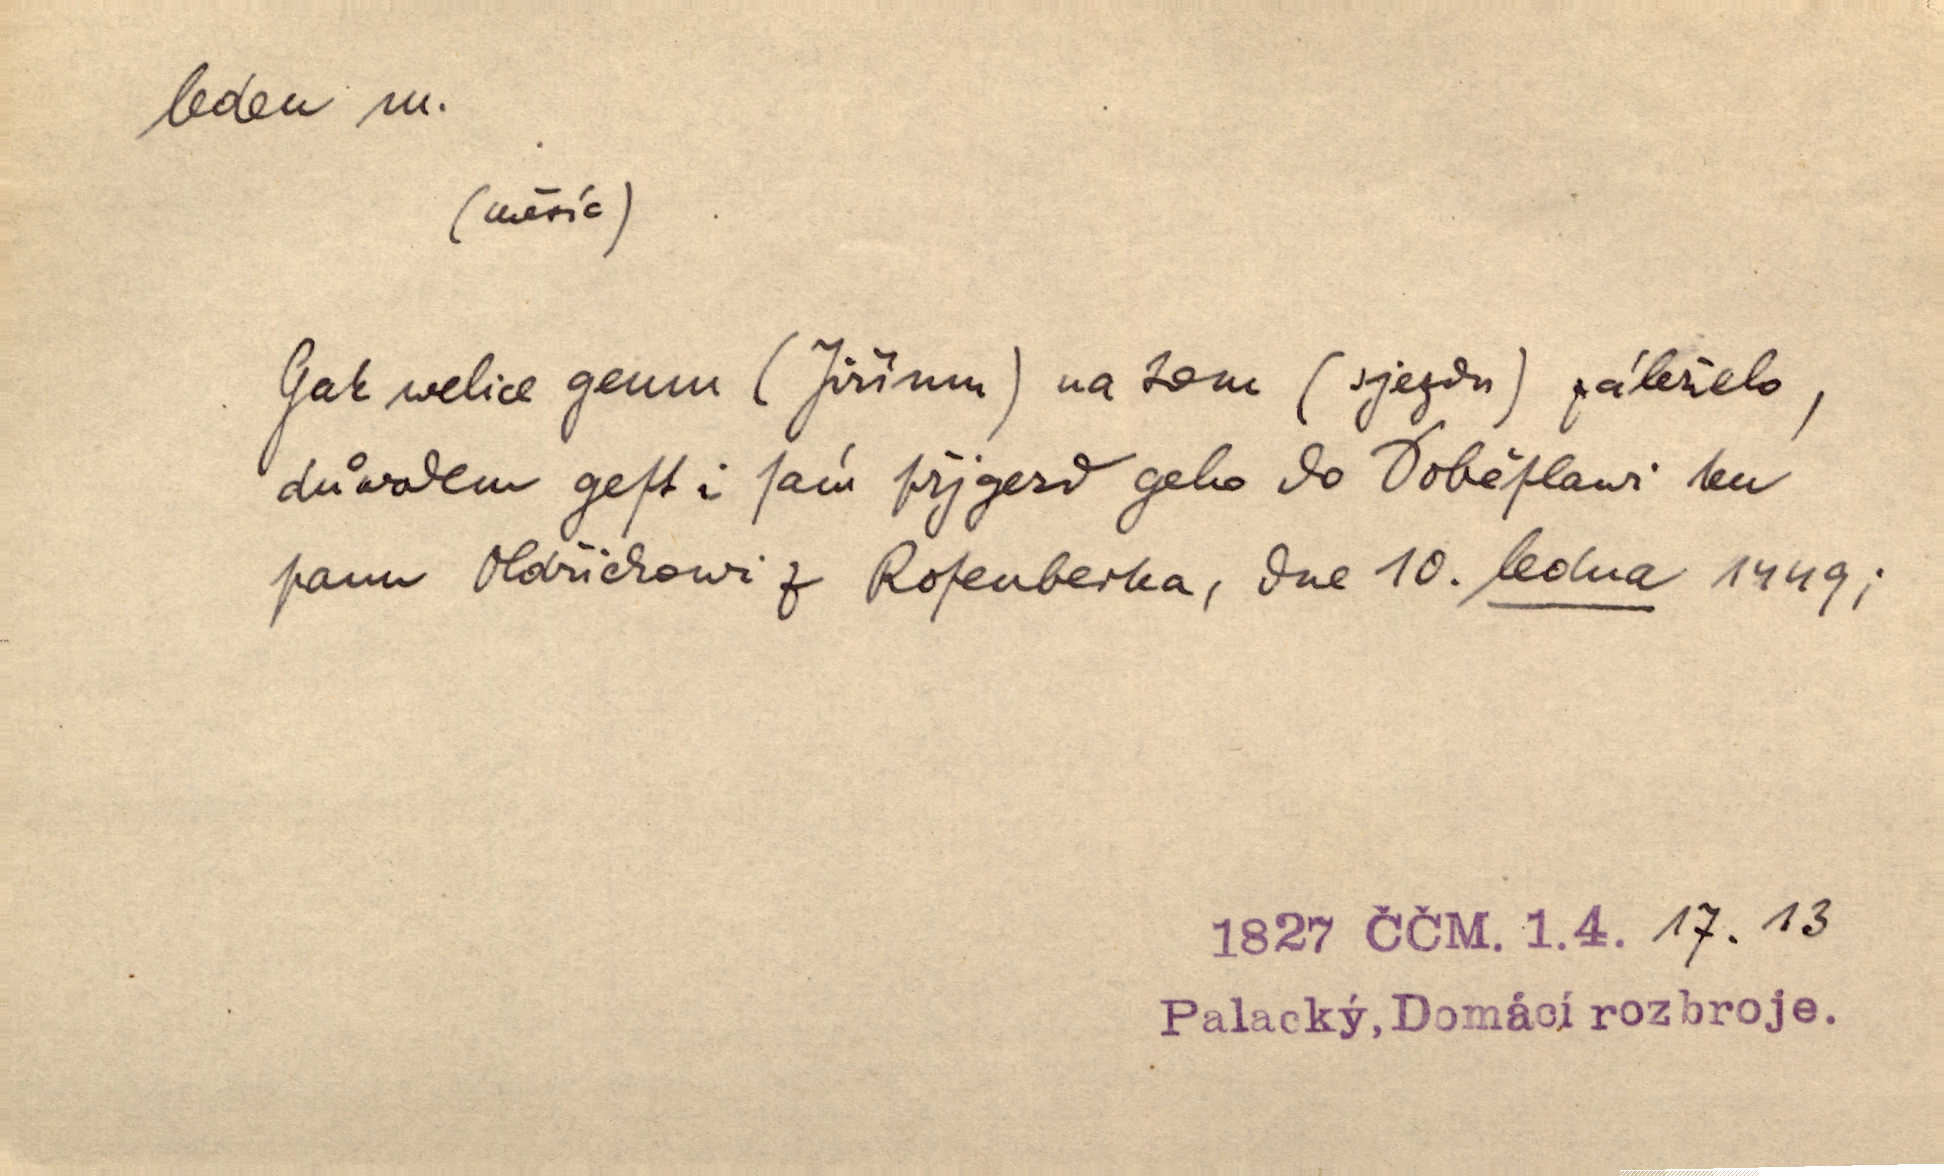 leden m.
(měsíc)
Gak welice gemu (Jiřímu) na tom (sjezdu) záleželo,
důwodem geſt i ſám přjgezd geho do Doběſlawi ku
panu Oldřichowi z Roſenberka, dne 10. ledna 1449;
1827 ČČM. 1.4. 17. 13
Palacký, Domácí rozbroje.